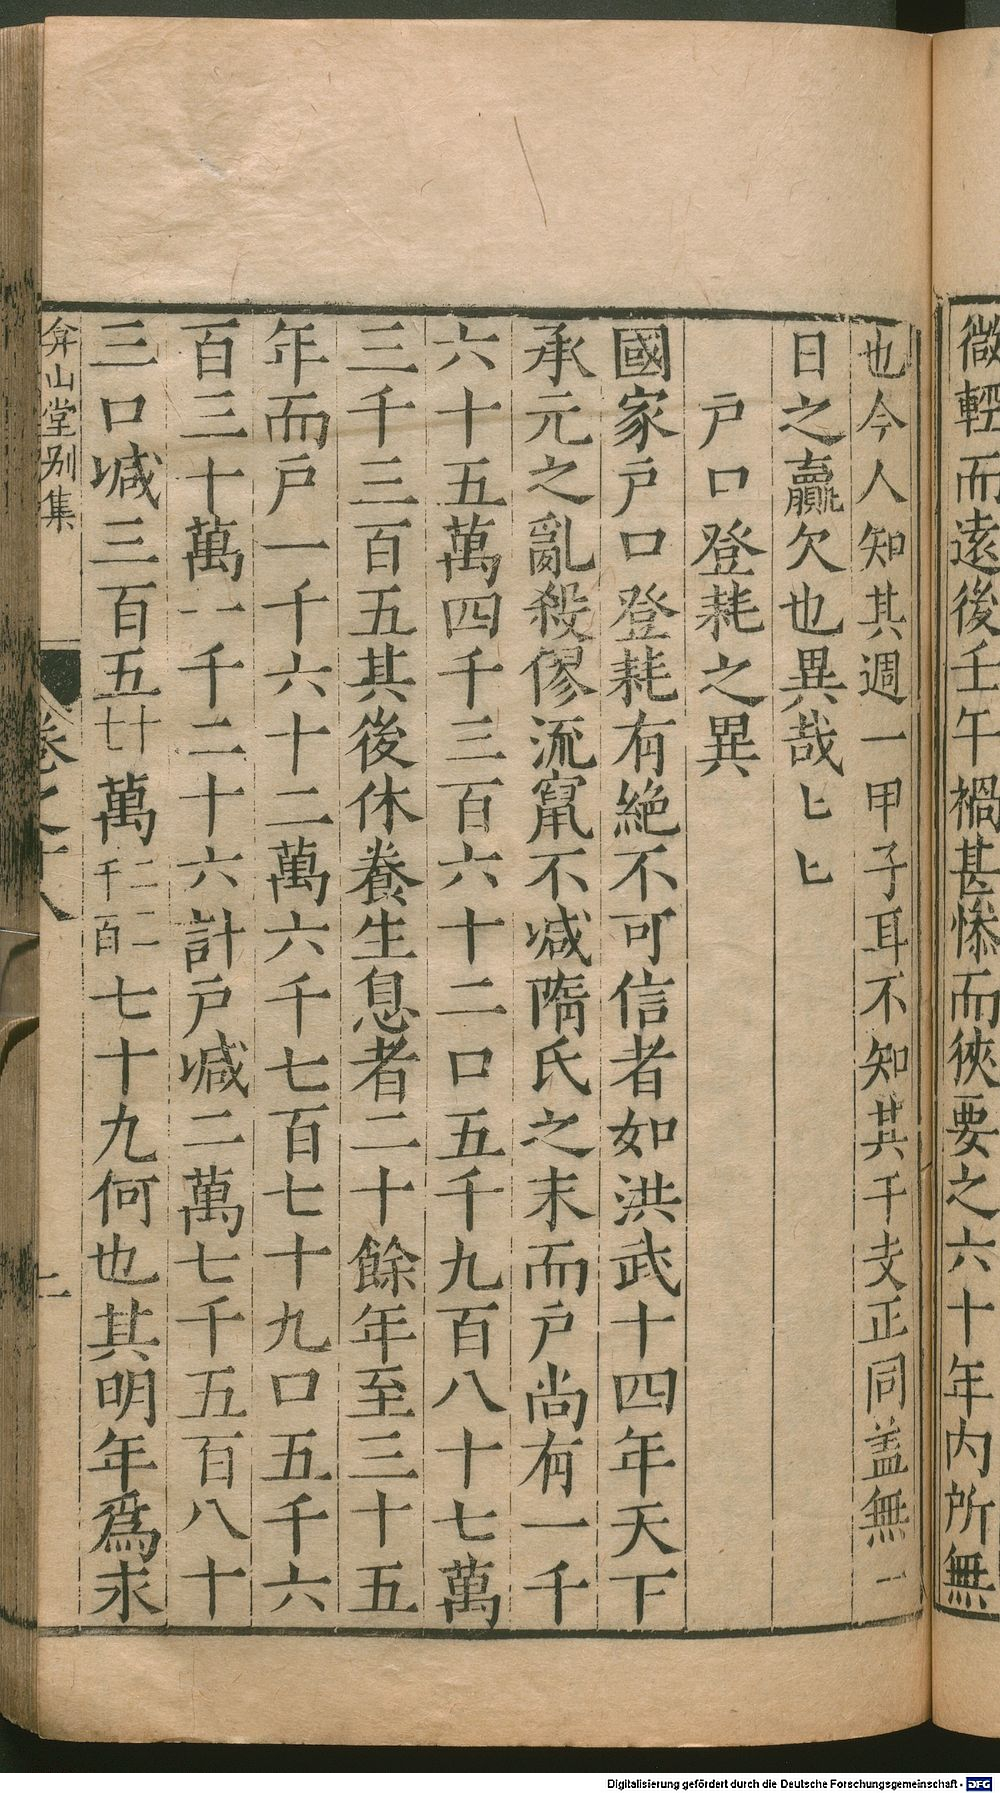 微輕而遠後壬午禍甚慘而狹要之六十年內所無
也今人知其週一甲子耳不知其干支正同盖無一
日之贏欠也異哉
戶口登耗之異
國家戶口登耗有絶不可信者如洪武十四年天下
承元之亂殺僇流竄不减隋氏之末而戶尚有一千
六十五萬四千三百六十二口五千九百八十七萬
三千三百五其後休養生息者二十餘年至三十五
年而戶一千六十二萬六千七百七十九口五千六
百三十萬一千二十六計戶减二萬七千五百八十
三口减三百五十七萬二千二百七十九何也其明年爲永
弇山堂别集
卷之十八
十一
Digitalisierung gefördert durch die Deutsche Forschungsgemeinschaft - DFG